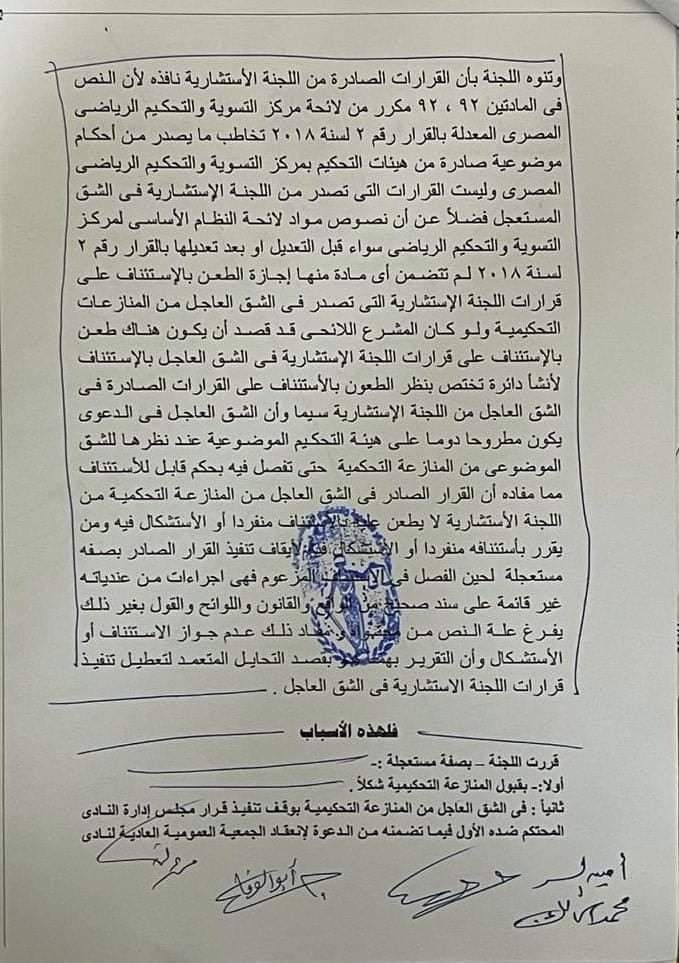 وتنوه اللجنة بأن القرارات الصادرة من اللجنة الأستشارية نافذه لأن النص
فى المادتين ٩٢ ، ٩٢ مكرر من لائحة مركز التسوية والتحكيم الرياضى
المصرى المعدلة بالقرار رقم ٢ لسنة ٢٠١٨ تخاطب ما يصدر من أحكام
موضوعية صادرة من هيئات التحكيم بمركز التسوية والتحكيم الرياضى
المصرى وليست القرارات التى تصدر من اللجنة الإستشارية فى الشق
المستعجل فضلاً عن أن نصوص مواد لائحة النظام الأساسى لمركز
التسوية والتحكيم الرياضى سواء قبل التعديل او بعد تعديلها بالقرار رقم ٢
لسنة ٢٠١٨ لم تتضمن أى مادة منها إجازة الطعن بالإستئناف على
قرارات اللجنة الإستشارية التى تصدر فى الشق العاجل من المنازعات
التحكيمية ولو كان المشرع اللائحى قد قصد أن يكون هناك طعن
بالإستئناف على قرارات اللجنة الإستشارية فى الشق العاجل بالإستئناف
لأنشأ دائرة تختص بنظر الطعون بالأستئناف على القرارات الصادرة فى
الشق العاجل من اللجنة الإستشارية سيما وأن الشق العاجل فى الدعوى
يكون مطروحا دوما على هيئة التحكيم الموضوعية عند نظرها للشق
الموضوعى من المنازعة التحكمية حتى تفصل فيه بحكم قابل للأستئناف
مما مفاده أن القرار الصادر فى الشق العاجل من المنازعة التحكمية من
اللجنة الأستشارية لا يطعن عليه بالإستئناف منفردا أو الأستشكال فيه ومن
يقرر بأستئنافه منفردا أو الإستشكال فيه لإيقاف تنفيذ القرار الصادر بصفه
مستعجلة لحين الفصل فى المزعوم فهى اجراءات من عندياته
غير قائمة على سند صحيح من الواقع والقانون واللوائح والقول بغير ذلك
يفرغ علة النص من ومفاد ذلك عدم جواز الاستئناف أو
الأستشكال وأن التقرير بهما هو بقصد التحايل المتعمد لتعطيل تنفيذ
قرارات اللجنة الاستشارية فى الشق العاجل .
فلهذه الأسباب
قررت اللجنة – بصفة مستعجلة :-
أولا:- بقبول المنازعة التحكيمية شكلاً .
ثانياً : فى الشق العاجل من المنازعة التحكيمية بوقف تنفيذ قرار مجلس إدارة النادى
المحتكم ضده الأول فيما تضمنه من الدعوة لإنعقاد الجمعية العمومية العادية لنادى